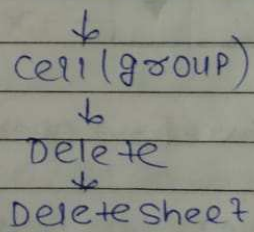 ↓
Cell (group)
↓
Delete
↓
Delete sheet